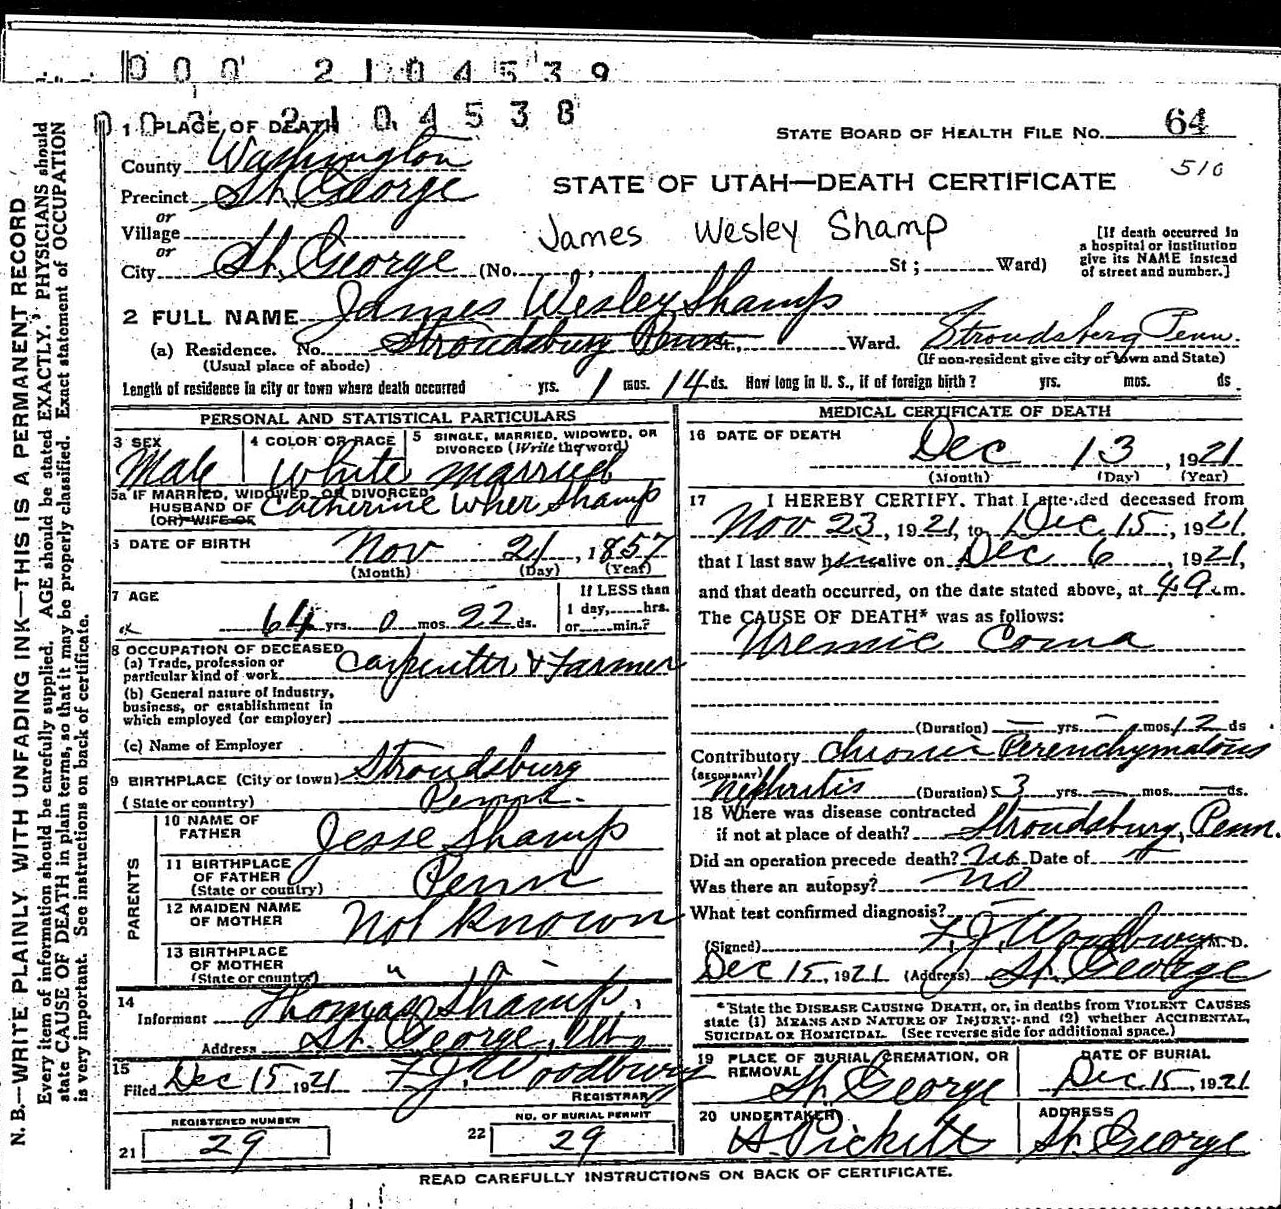 000 2104539
003 2104538
1 PLACE OF DEATH
STATE BOARD OF HEALTH FILE NO. 64
510
County Washington
Precinct St. George
STATE OF UTAH—DEATH CERTIFICATE
or
Village
or
City St. George (No. , St ; Ward)
James Wesley Shamp
[If death occurred in
a hospital or institution
give its NAME instead
of street and number.]
2 FULL NAME James Wesley Shamp
(a) Residence. No. Stroudsburg Penn. St., Ward. Stroudsberg Penn.
(Usual place of abode) (If non-resident give city or town and State)
Length of residence in city or town where death occurred yrs. 1 mos. 14 ds. How long in U. S., if of foreign birth? yrs. mos. ds.
PERSONAL AND STATISTICAL PARTICULARS
3 SEX
Male
4 COLOR OR RACE
White
5 SINGLE, MARRIED, WIDOWED, OR
DIVORCED (Write the word)
married
5a IF MARRIED, WIDOWED, OR DIVORCED
HUSBAND OF Catherine Wher Shamp
(OR) WIFE OF
6 DATE OF BIRTH Nov 21, 1857
(Month) (Day) (Year)
7 AGE
64 yrs. 0 mos. 22 ds.
If LESS than
1 day, hrs.
or min.?
8 OCCUPATION OF DECEASED
(a) Trade, profession or
particular kind of work Carpenter & Farmer
(b) General nature of Industry,
business, or establishment in
which employed (or employer)
(c) Name of Employer
9 BIRTHPLACE (City or town) Stroudsburg
(State or country) Penna.
PARENTS
10 NAME OF
FATHER Jesse Shamp
11 BIRTHPLACE
OF FATHER
(State or country) Penn
12 MAIDEN NAME
OF MOTHER Not Known
13 BIRTHPLACE
OF MOTHER
(State or country) " "
14
Informant Thomas Shamp
Address St. George, Ut.
15
Filed Dec 15, 1921 F. J. Woodbury
REGISTRAR
REGISTERED NUMBER
21 29
NO. OF BURIAL PERMIT
22 29
MEDICAL CERTIFICATE OF DEATH
16 DATE OF DEATH
Dec 13, 1921
(Month) (Day) (Year)
17 I HEREBY CERTIFY. That I attended deceased from
Nov 23, 1921, to Dec. 15, 1921.
that I last saw him alive on Dec 6, 1921,
and that death occurred, on the date stated above, at 4 9 a.m.
The CAUSE OF DEATH* was as follows:
Uremic Coma
(Duration) — yrs. — mos. 12 ds
Contributory Chronic Perenchymatous
(SECONDARY)
Nephritis (Duration) 3 yrs. — mos. — ds.
18 Where was disease contracted
if not at place of death? Stroudsburg, Penn.
Did an operation precede death? No Date of
Was there an autopsy? No
What test confirmed diagnosis?
(Signed) F. J. Woodbury M. D.
Dec 15, 1921 (Address) St. George
*State the DISEASE CAUSING DEATH, or, in deaths from VIOLENT CAUSES
state (1) MEANS AND NATURE OF INJURY; and (2) whether ACCIDENTAL,
SUICIDAL OR HOMICIDAL. (See reverse side for additional space.)
19 PLACE OF BURIAL, CREMATION, OR
REMOVAL St. George
DATE OF BURIAL
Dec 15, 1921
20 UNDERTAKER
A. Pickett
ADDRESS
St. George
READ CAREFULLY INSTRUCTIONS ON BACK OF CERTIFICATE.
N. B.—WRITE PLAINLY WITH UNFADING INK—THIS IS A PERMANENT RECORD
Every item of information should be carefully supplied. AGE should be stated EXACTLY. PHYSICIANS should
state CAUSE OF DEATH in plain terms, so that it may be properly classified. Exact statement of OCCUPATION
is very important. See instructions on back of certificate.